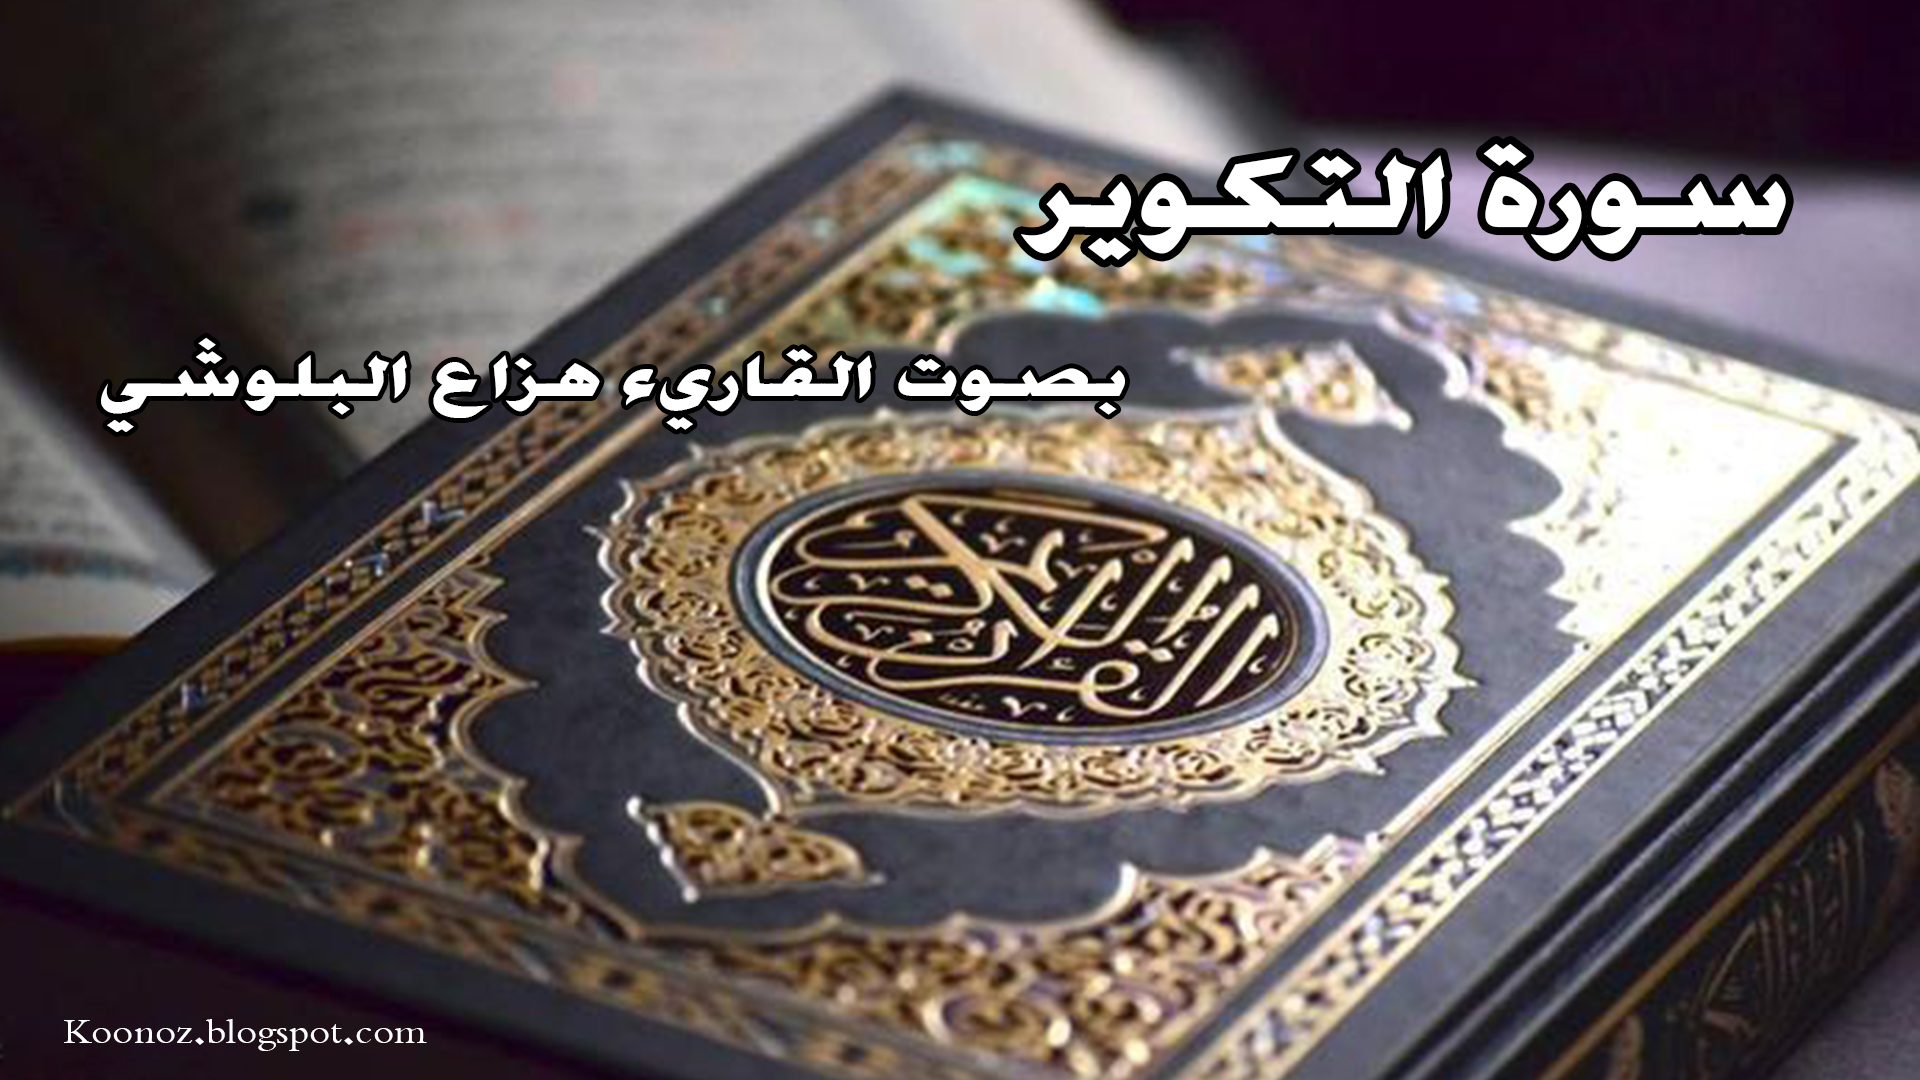 سورة التكوير
بصوت القاريء هزاع البلوشي
القرآن الكريم
Koonoz.blogspot.com